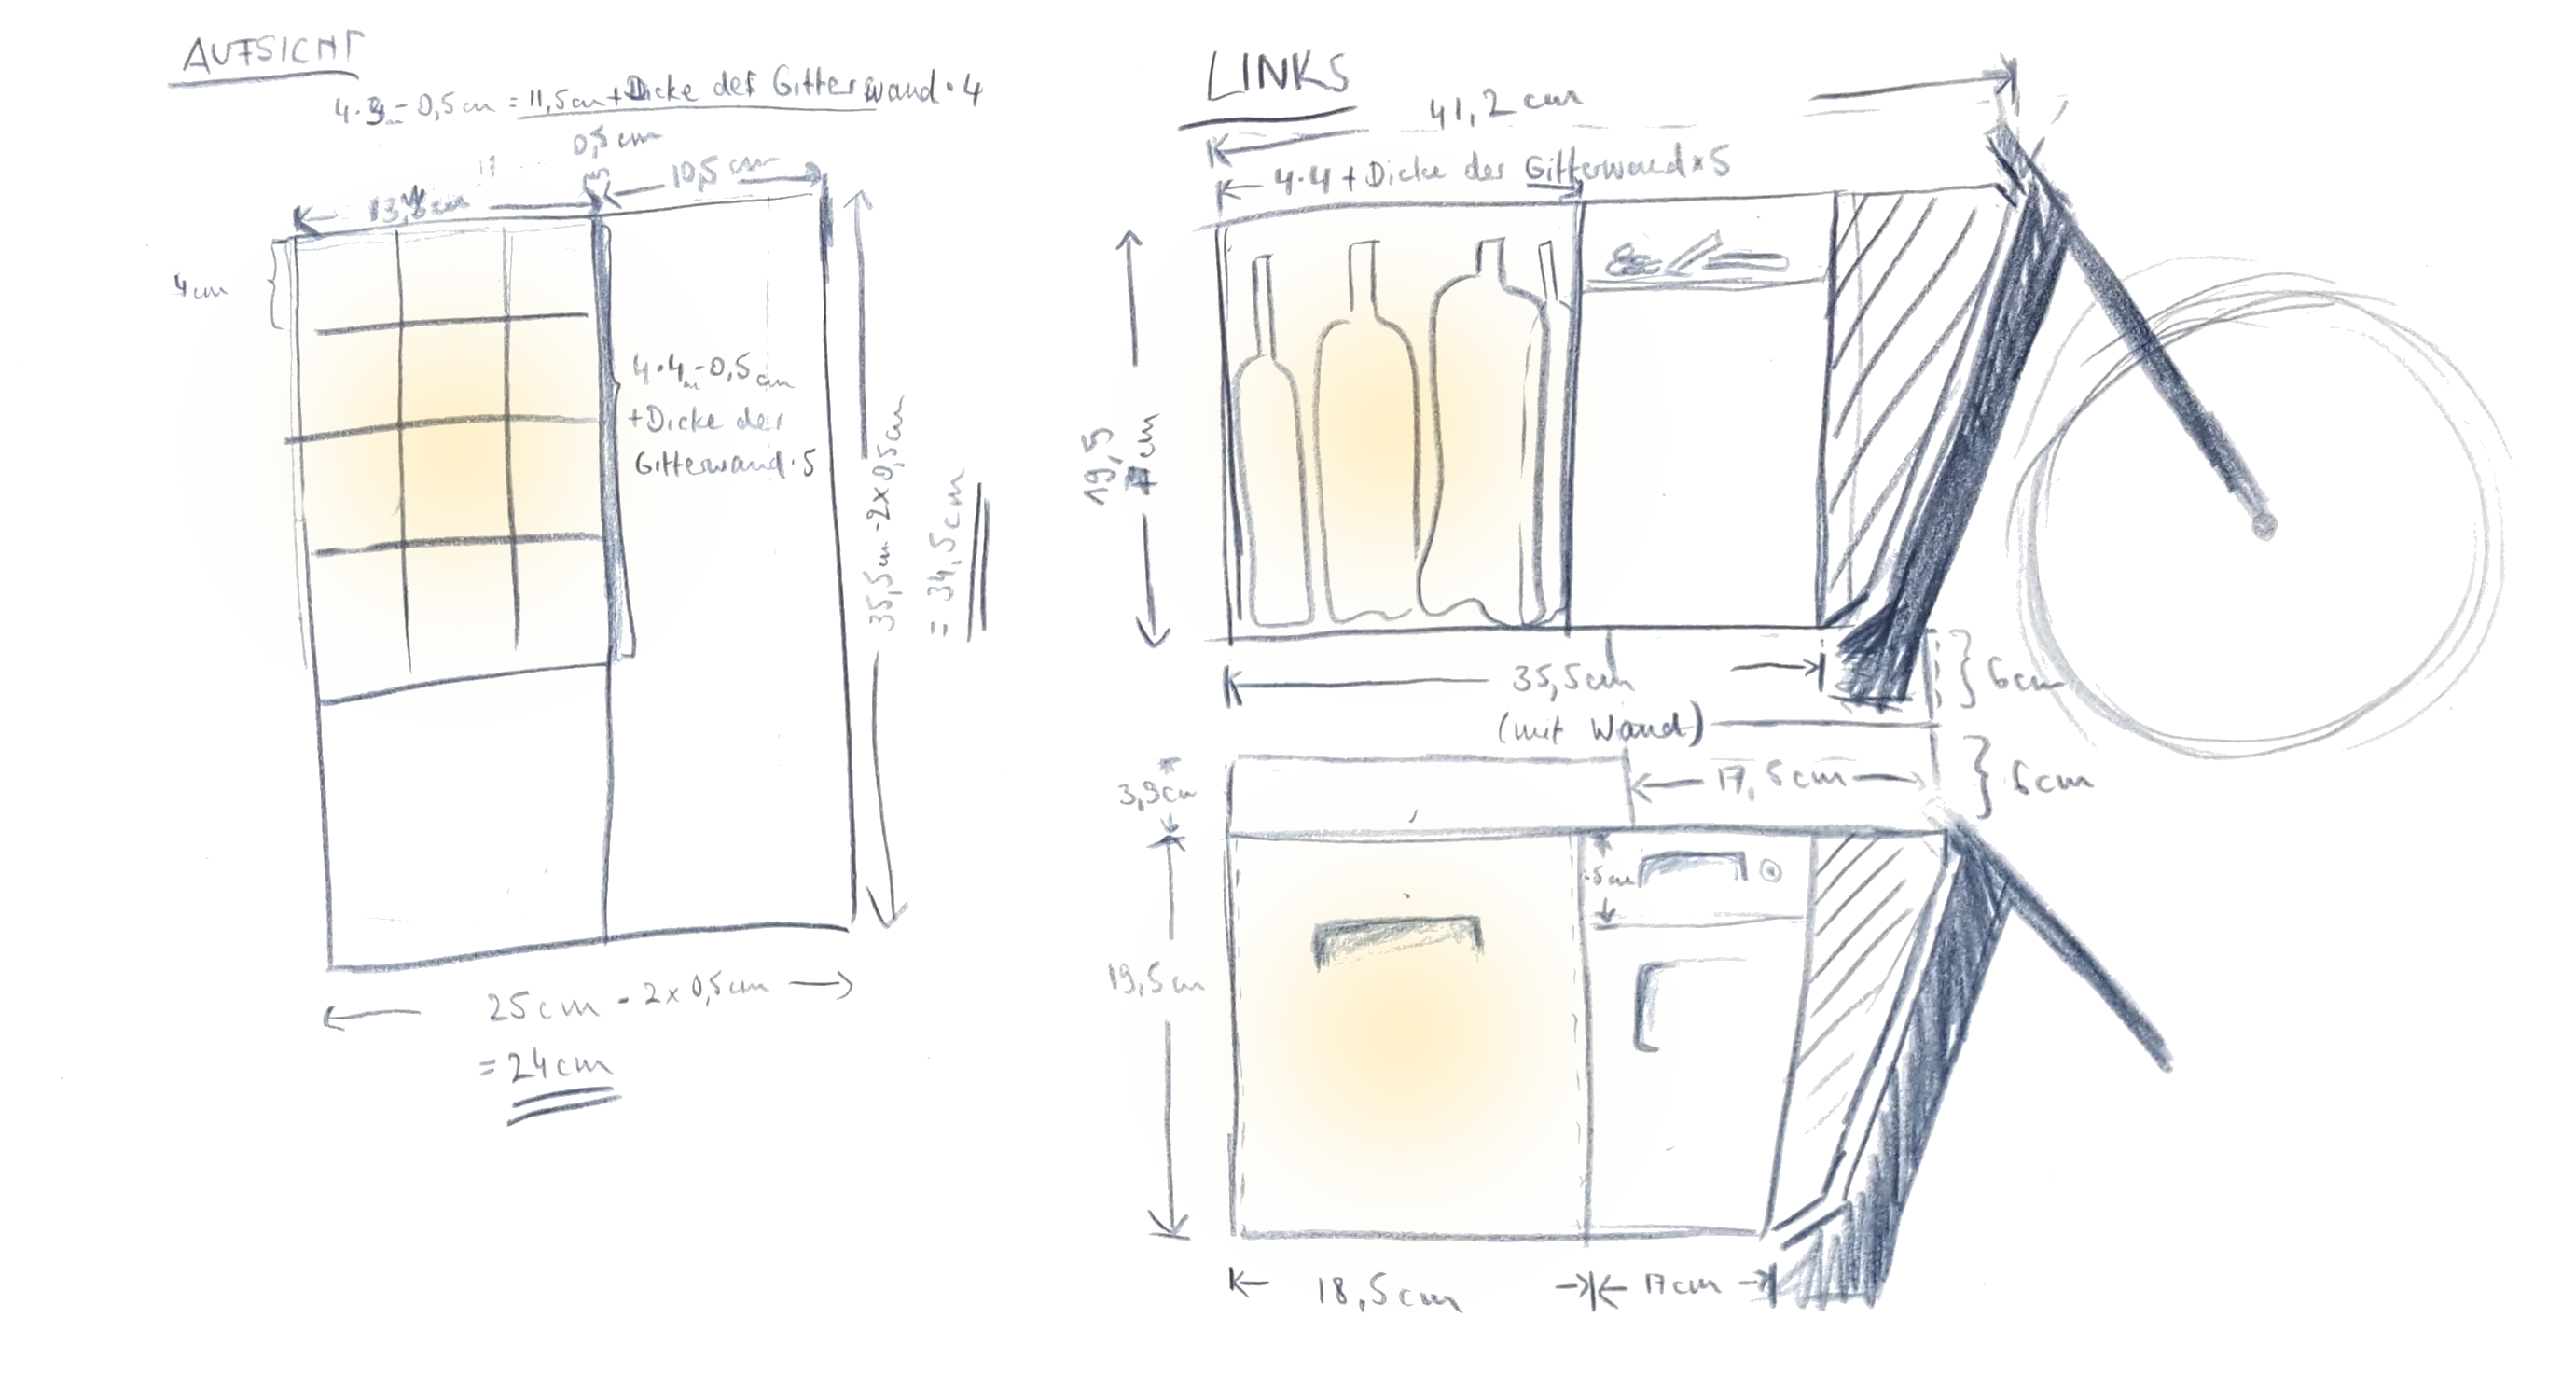 AUFSICHT
4·3 - 0,5cm = 11,5cm + Dicke der Gitterwand·4
0,5 cm
10,5 cm
4cm
4·4 - 0,5cm
+ Dicke der
Gitterwand·5
35,5cm - 2x0,5cm
= 34,5cm
25cm - 2x0,5cm
= 24cm
LINKS
41,2 cm
4·4 + Dicke der Gitterwand×5
19,5
cm
35,5cm
(mit Wand)
6cm
6cm
3,9cm
17,5cm
5cm
19,5cm
18,5cm
17cm